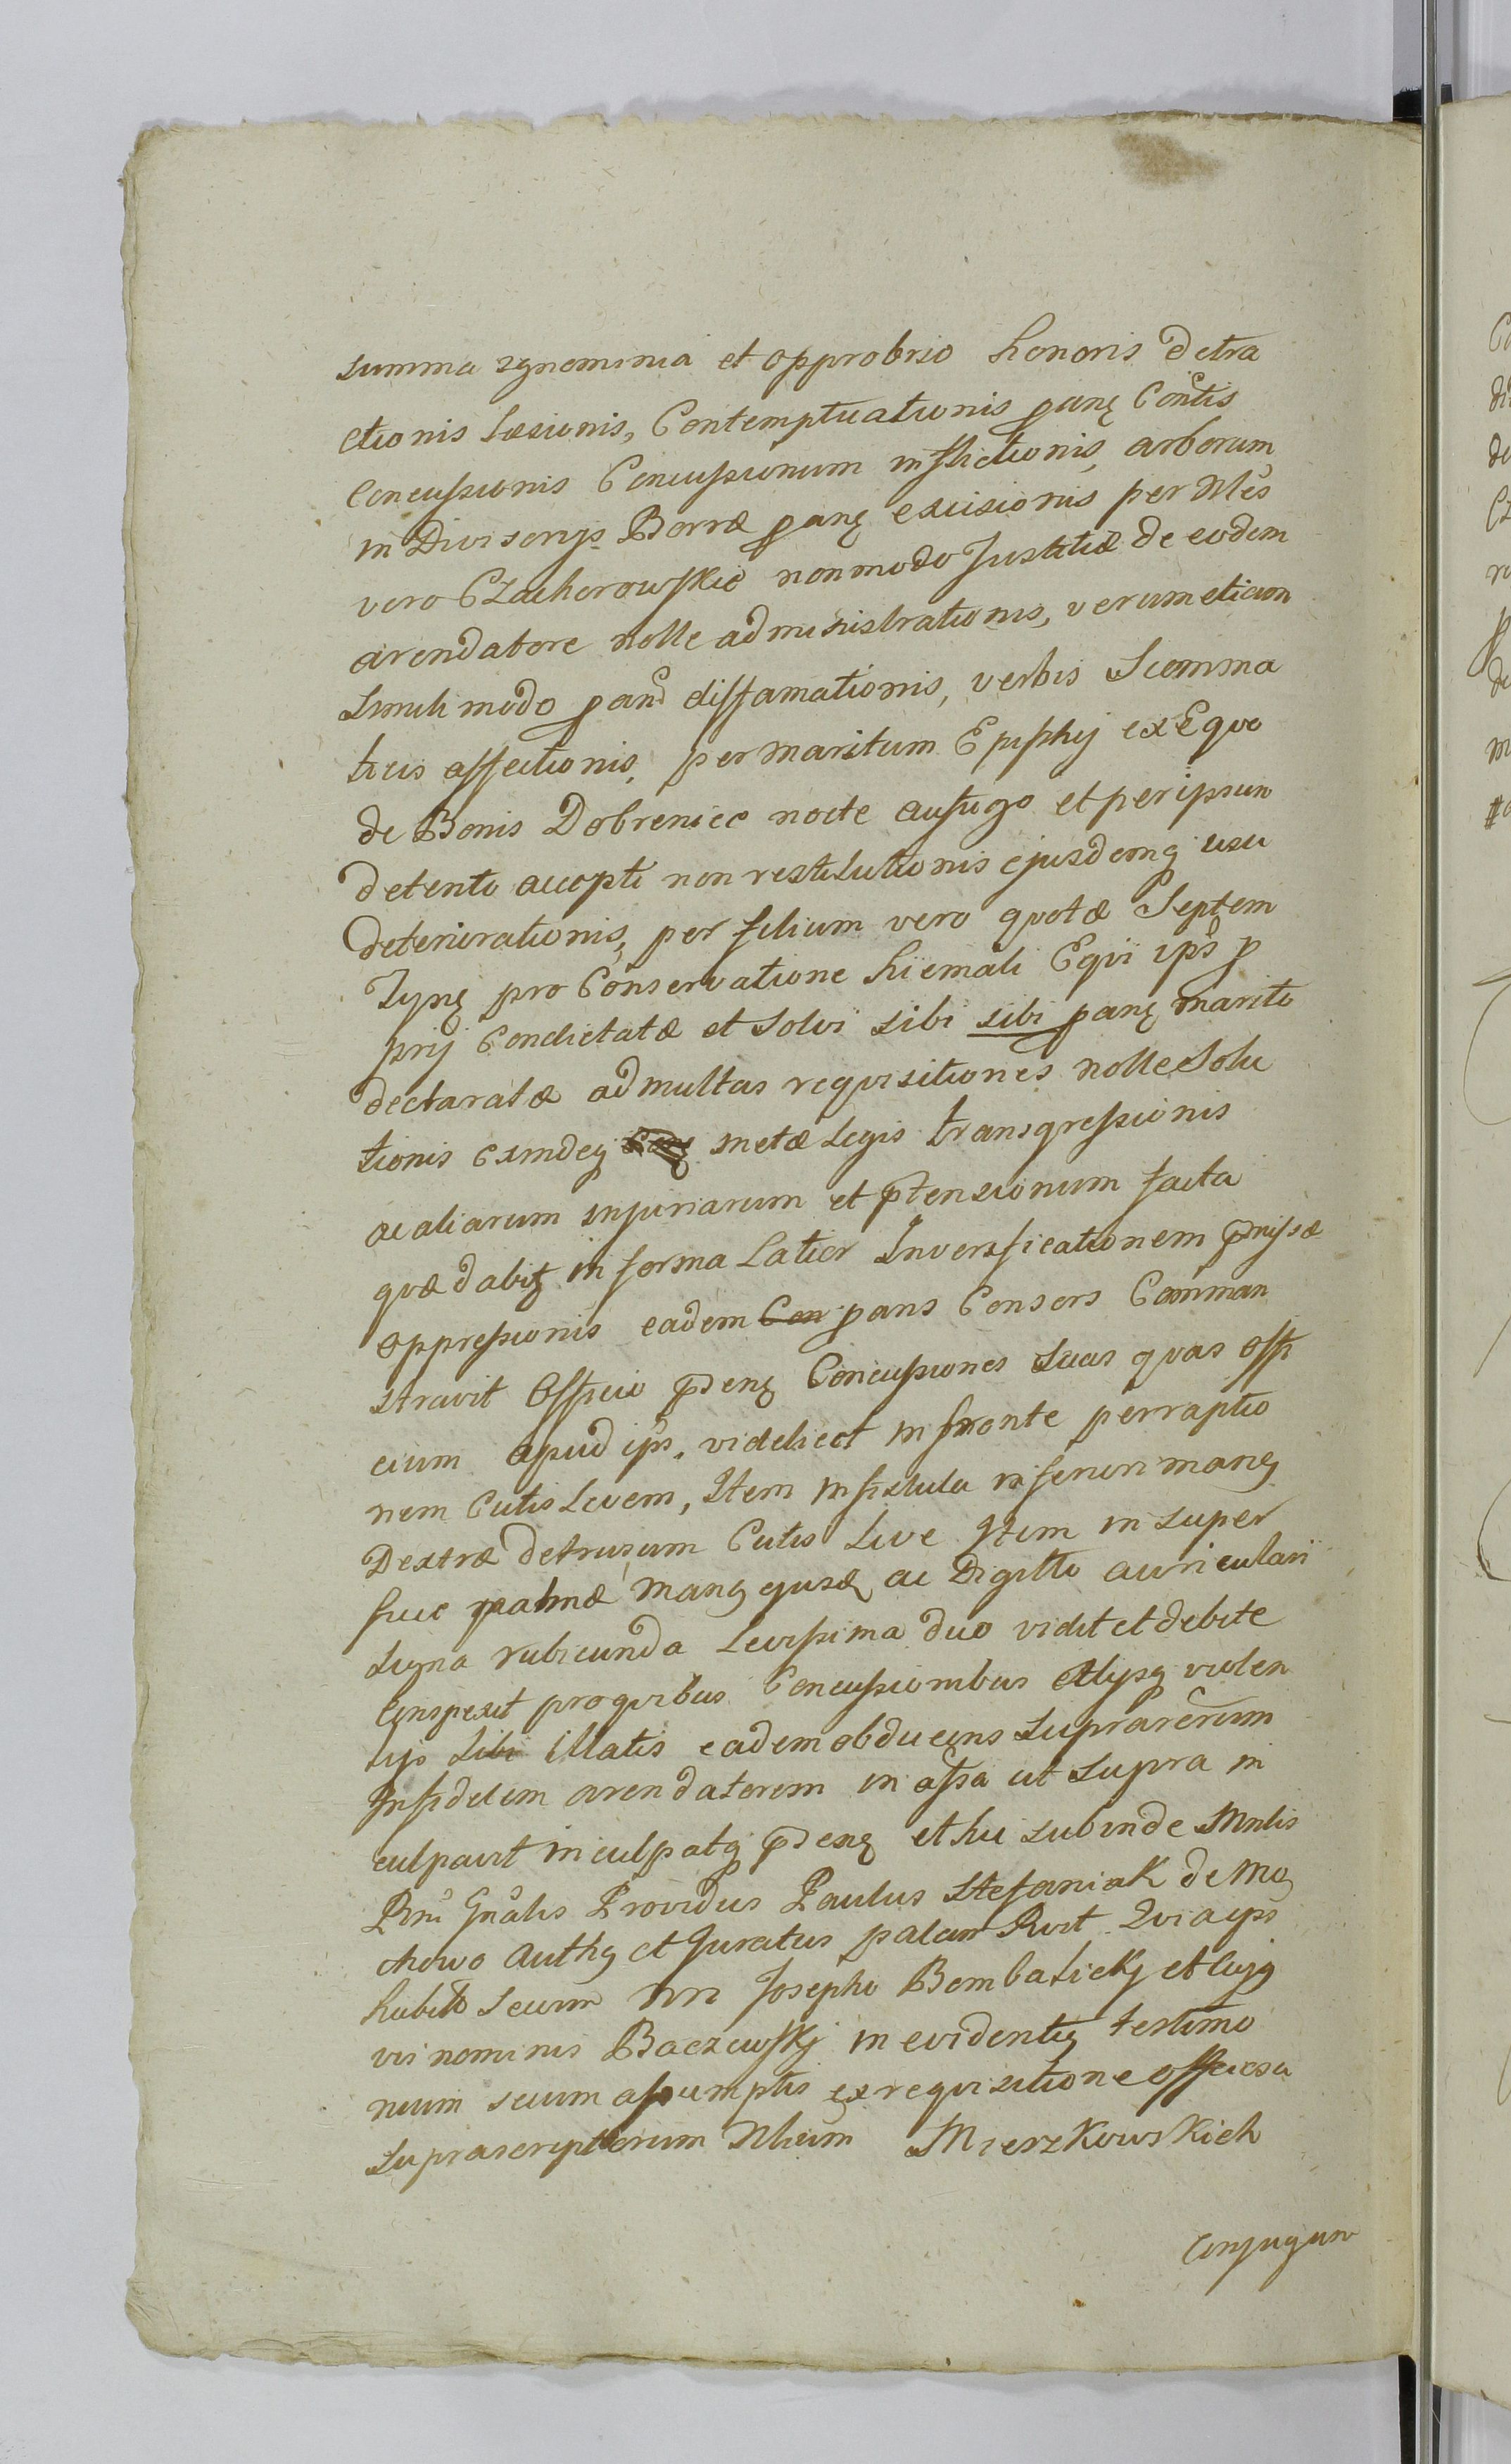 summa ignominia et opprobrio honoris detra
ctionis Læsionis, Contemptuationis panę Contis
Concussionis Concussionum inflictionis, arborum
in Divisorijs Borræ panę excisionis per Mĕs
vero Czachorowskie non modo Justitiæ de eodem
arendatore nolle administrationis, verum etiam
simili modo pand diffamationis, verbis Scomma
ticis affectionis, per maritum Ephphij ex Equo
de Bonis Dobreniec nocte aufugo et per ipsum
detento accepti non restitutionis ejusdemq usu
deteriorationis, per filium vero quotæ Septem
Tynę pro Conservatione hiemali Equi ips p
prij Condictatæ et solvi sibi sibi panę marito
declaratæ ad multas requisitiones nolle Solu
tionis Eximdeq metæ Legis transgressionis
ac aliarum injuriarum et ptensionum facta
quæ dabitʒ in forma Latior Inversficationem pmissæ
oppressionis eadem Con pans Consors Comman
stravit Officio pdenę Concussiones Suas quas offi
cium apud ips, videlicet in fronte perraptio
nem Cutis Levem, Item in fistula inferiori manq
Dextræ detrusum Cutis Live Item in super
ficie palmæ manq ejusd ac Digitto auriculari
Signa rubicunda Levissima duo vidit et debite
Conspexit pro quibus Concussionibus Alijsq violen
tijs sibi illatis eadem obducens Supra rerum
Infidelem arendatorem in assa ut supra in
culpavit inculpatq pdenę et hic subinde Mnlis
Rni Gnalis Providus Paulus Stefaniak de Mo
chowo Authq et Juratus palam Rvit Qvia ips
habito secum nn Josepho Bombalickj et Cujq
vis nominis Baczewskj in evidentię testimo
nium secum assumptis ex requisitione officiosa
Suprascriptorum Mheum Mierzkowskich
Conjugum